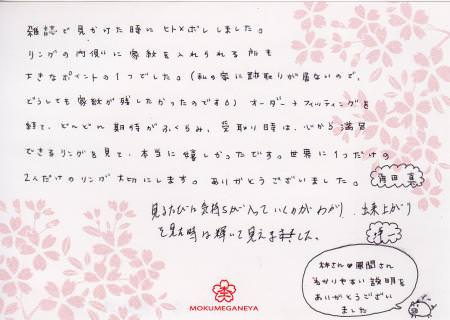 雑誌で見かけた時にヒトメボレしました。
リングの内側に家紋を入れられる所も
大きなポイントの1つでした。(私の家に跡取りが居ないので、
どうしても家紋が残したかったのです。) オーダー→フィッティングを
経て、どんどん期待がふくらみ、受取り時は、心から満足
できるリングを見て、本当に嬉しかったです。世界に1つだけの
2人だけのリング大切にします。ありがとうございました。
見るたびに気持ちが入っていくのがわかり、出来上がり
を見た時は輝いて見えました。
林さん♥風間さん
わかりやすい説明を
ありがとうござい
ました
MOKUMEGANEYA